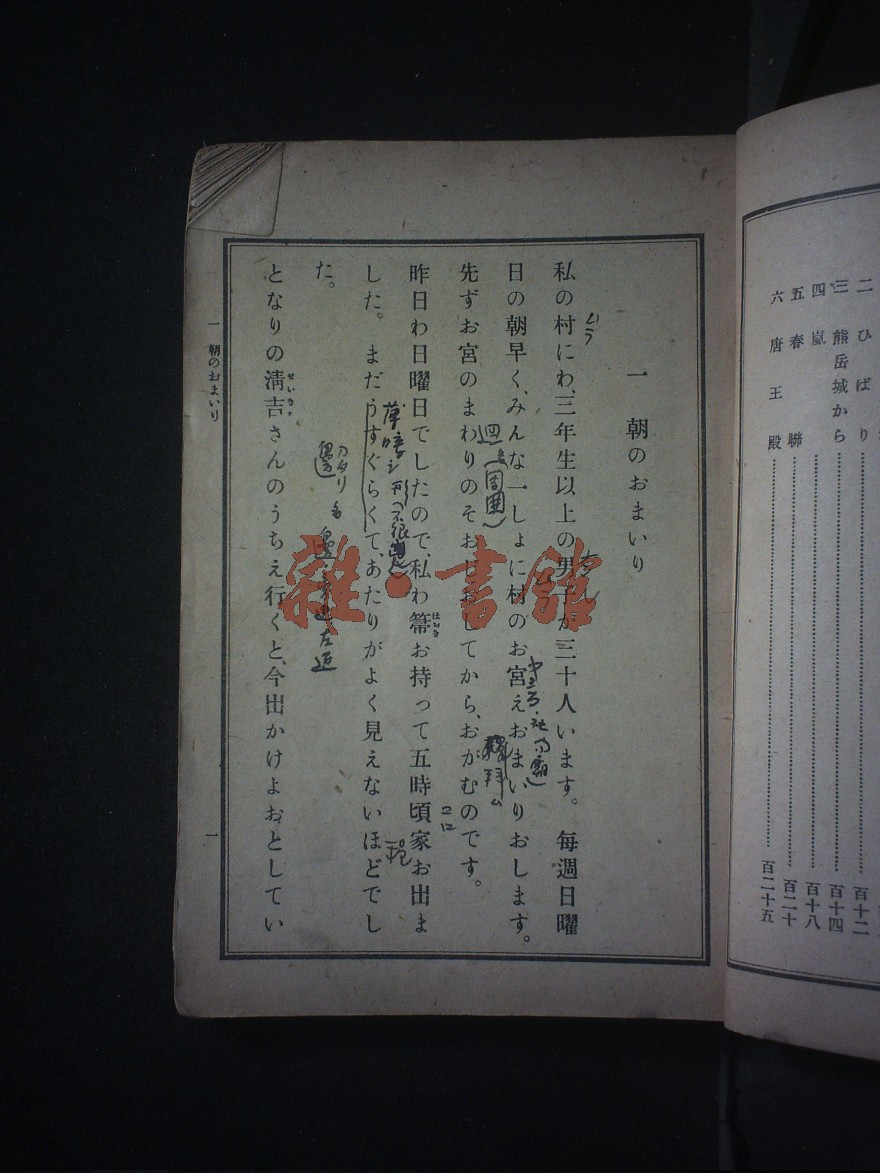 二 ひばり……百十二
三 熊岳城から……百十四
四 嵐……百十八
五 春聯……百二十
六 唐王殿……百二十五
一 朝のおまいり
私の村にわ、三年生以上の男子が三十人います。 每週日曜
日の朝早く、みんな一しょに村のお宮えおまいりおします。
先ずお宮のまわりのそおじおしてから、おがむのです。
昨日わ日曜日でしたので、私わ箒お持って五時頃家お出ま
した。 まだうすぐらくて、あたりがよく見えないほどでし
た。
となりの淸吉さんのうちえ行くと、今出かけよおとしてい
はうき
せいきち
ムラ
周圍
一 朝のおまいり
一
雜·書館